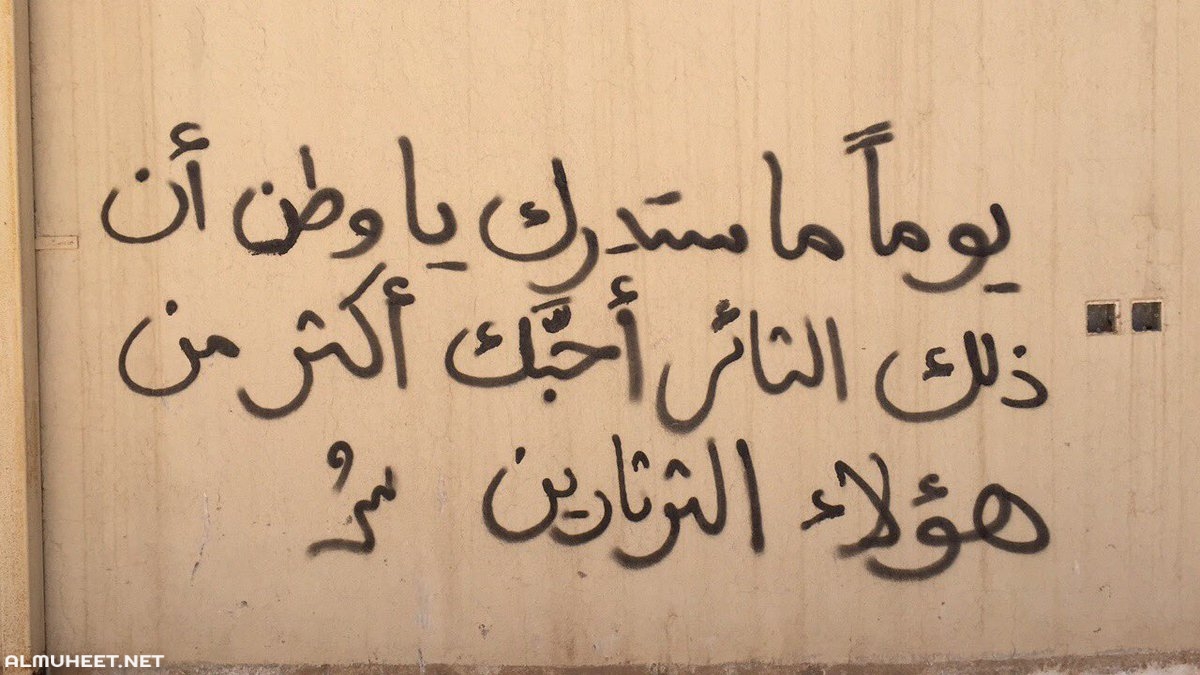 يوماً ما ستدرك يا وطن أن
ذلك الثائر أحبَّك أكثر من
هؤلاء الثرثارين
ALMUHEET.NET